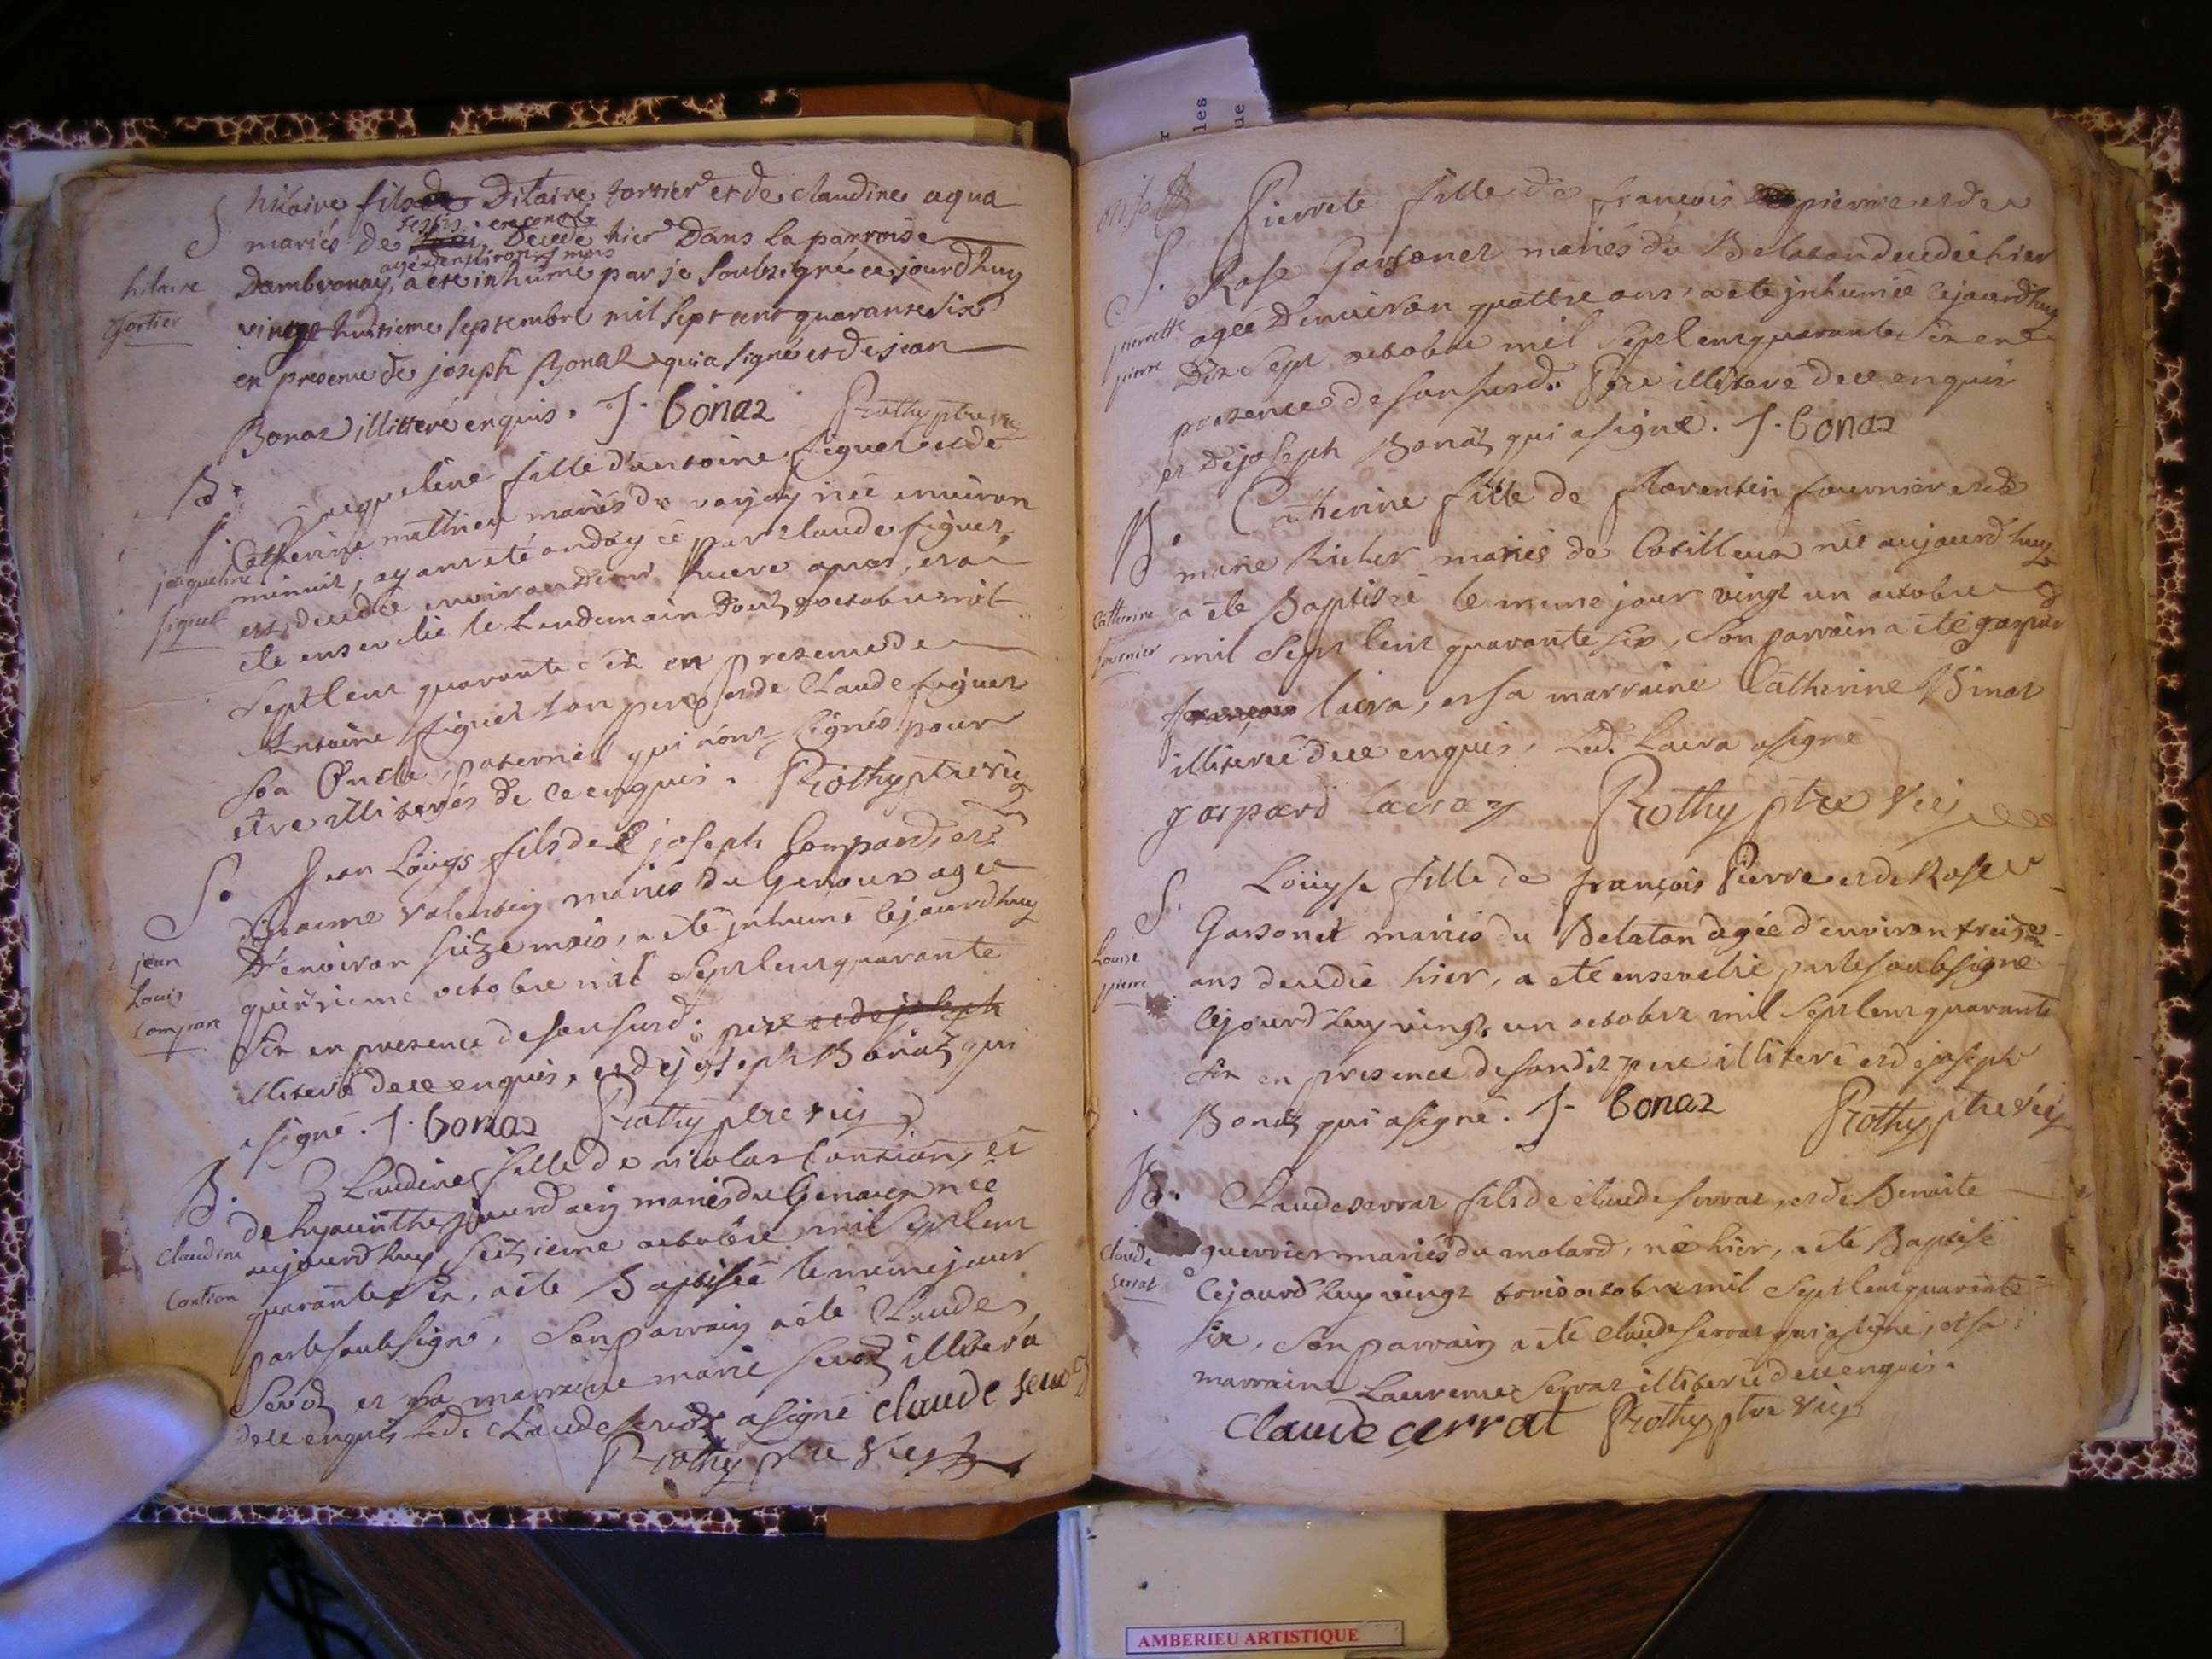 S hilaire fils de Ditaire fortier et de claudine aqua
mariés de decedé hier Dans la parroise
agé denviron mois
hilaire fortier
Dambronay, a ete inhumé par je soubsigné ce jourdhuy
vingt huitieme septembre mil sept cent quarante six
en presence de joseph Bonaz qui a signé et de jean
Bonaz illitteré enquis. J. bonaz Rothy ptre vic
B. S. jacqueline fille d'antoine figuet et de
Catherine mathieu mariés du née environ
jacqueline figuet
minuit, ayant été ondoyée par claude figuet,
est decedée environ heure apres, et a
ete ensevelie le Lendemain octobre mil
Sept cent quarante six en presence de
Antoine figuet son pere et de Claude figuet
son Oncle paternel qui n'ont signés pour
etre illiterés de ce enquis. Rothy ptre vic
S. Jean Loüys fils de joseph Compand, et
valentin mariés du Genoux agé
D'environ seize mois, a eté jnhumé cejourdhuy
jean Louis compan
quinzieme octobre mil sept cent quarante
Six en presence de son susd. pere et de joseph
illiteré de ce enquis, et de joseph Bonaz qui
a signé. J. bonaz Rothy ptre vic
B. Claudine fille de nicolas Contion, et
de hyacinthe jourdain mariés du Genoux née
claudine Contion
aujourdhuy seizieme octobre mil sept cent
quarante six, a ete Baptisée le meme jour
par le soubsigné, Son parrain a eté Claude
Servoz et sa marraine marie Servoz illiterée
de ce enquis led. Claude Servoz a signé claude
Rothy ptre Vic
Pierrete fille de françois pierre et de
S. Rose Garsonet mariés du Belaton decedée hier
pierrette pierre
agée Denviron quattre ans, a eté jnhumée cejourdhuy
Dix Sept octobre mil Sept cent quarante Six en
presence de son susd. Pere illiteré de ce enquis
et de joseph Bonaz qui a signé. J. bonaz
B. Catherine fille de florentin fournier et de
marie Richer mariés de Cotilleux née aujourd'huy
Catherine fournier
a ete Baptisée le meme jour vingt un octobre
mil Sept Cent quarante six, Son parrain a eté gaspar
françois lacra, et sa marraine Catherine Binot
illiterée de ce enquis, Led. Lacra a signé
gaspard lacra Rothy ptre Vic
S. Loüyse fille de françois Pierre et de Rose
Garsonet mariés du Belaton agée d'environ treize
Louise pierre
ans decedée hier, a eté ensevelie par le soubsigné
Cejourd'huy vingt un octobre mil Sept cent quarante
six en presence de sondit pere illiteré et de joseph
Bonaz qui a signé. J. bonaz Rothy ptre Vic
B. Claude serrat fils de claude serrat, et de Benoite
Claude serrat
guerrier mariés du molard, né hier, a eté Baptisé
Cejourd'huy vingt trois octobre mil Sept Cent quarante
six, Son parrain a eté claude serrat qui a signé, et sa
marraine Laurence Serrat illiterée de ce enquis.
Claude cerrat Rothy ptre Vic
les
ue
AMBERIEU ARTISTIQUE